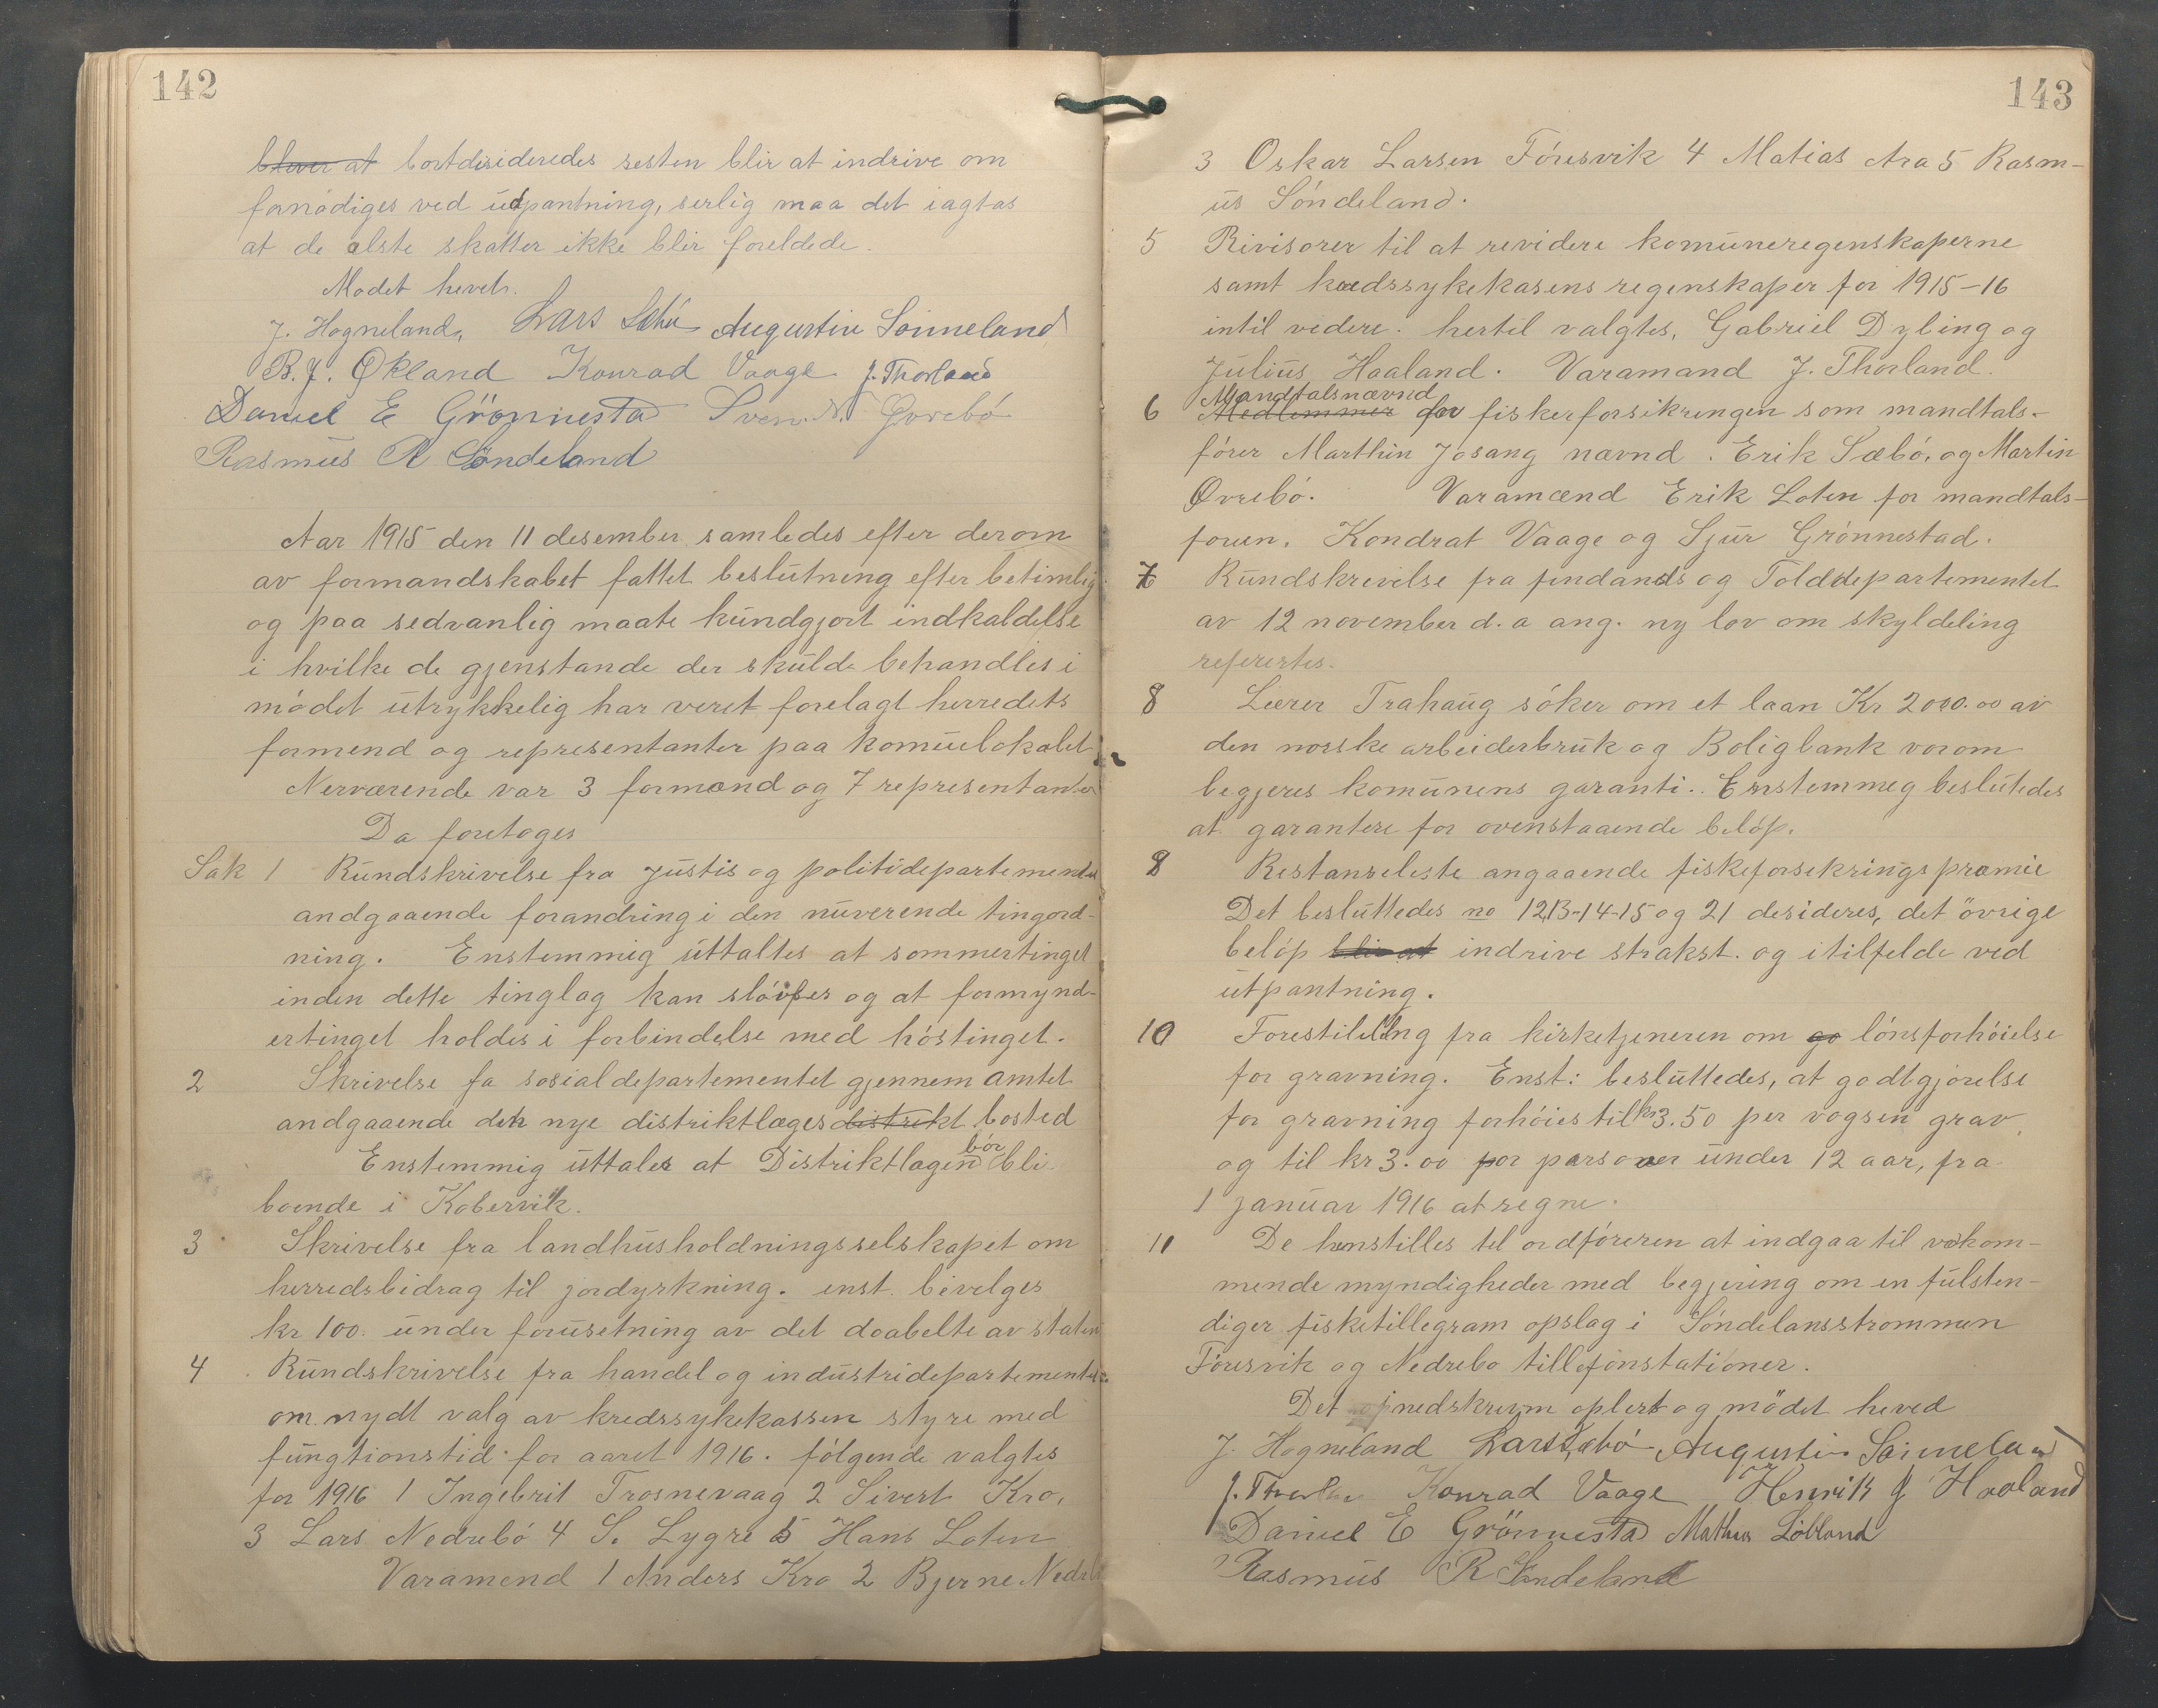 142
blever at bortdesideredes resten blir at indrive om
fornødiges ved udpantning, serlig maa det iagtas
at de elste skatter ikke blir foreldede.
Mødet hevet.
J. Hogneland, Lars Augustin Sönneland
B. J. Økland Konrad Vaage J. Thorland
Daniel E Grönnestad Sven N. Øvrebö
Rasmus R Söndeland
Aar 1915 den 11 desember samledes efter derom
av formandskabet fattet beslutning efter betimlig
og paa sedvanlig maate kundgjort indkaldelse
i hvilke de gjenstande der skulde behandles i
mödet utrykkelig har veret forelagt herredets
formend og representanter paa komuelokalet
Nerværende var 3 formænd og 7 representanter
Da foretoges
Sak 1 Rundskrivelse fra justis og politidepartementet
andgaaende forandring i den nuverende tingord-
ning. Enstemmig uttaltes at sommertinget
inden dette tinglag kan slöifes og at formynd-
ertinget holdes i forbindelse med hóstinget.
2 Skrivelse fa sosialdepartementet gjennem amtet
andgaaende den nye distriktlæges distrikt bosted
Enstemmig uttales at Distriktlægen bör bli
boende i Kobervik.
3 Skrivelse fra landhusholdningsselskapet om
herredsbidrag til jordyrkning. enst. bevelges
kr 100. under forusetning av det doabelte av staten
4 Rundskrivelse fra handel og industridepartementet
om nydt valg av kredssykekassen styre med
fungtionstid for aaret 1916. fölgende valgtes
for 1916 1 Ingebrit Trosnevaag 2 Sivert Kro,
3 Lars Nedrebö 4 S. Lygre 5 Hans Loten
Varamend 1 Anders Kro 2 Bjerne Nedrebö
143
3 Oskar Larsen Föresvik 4 Matias Ara 5 Rasm-
us Söndeland.
5 Rivisorer til at revidere komuneregenskaperne
samt kredssykekasens regenskaper for 1915-16
intil videre. hertil valgtes, Gabriel Dyling og
Julius Haaland. Varamand J. Thorland.
Mandtalsnævnd
6 Medlemmer for fiskerforsikringen som mandtals-
förer Marthin Josang nævnd. Erik Sæbö, og Martin
Øvrebö. Varamænd Erik Loten for mandtals-
foren. Kondrat Vaage og Sjur Grönnestad.
7 Rundskrivelse fra findands og Tolddepartementet
av 12 november d. a ang. ny lov om skyldeling
referertes.
8 Lærer Trahaug söker om et laan Kr 2000.00 av
den norske arbeiderbruk og Boligbank vorom
begjeres komunens garanti. Enstemmeg beslutedes
at garantere for ovenstaaende belöp.
8 Restanseleste angaaende fiskeforsekringspræmie
Det besluttedes no 12,13-14-15 og 21 desideres, det övrige
belöp blir at indrive strakst. og i tilfelde ved
utpantning.
10 Forestilling fra kirketjeneren om go lönsforhöielse
for gravning. Enst: besluttedes, at godtgjörelse
for gravning forhöies til kr 3.50 per vogsen grav
og til kr 3.00 for personer under 12 aar, fra
1 januar 1916 at regne.
11 De henstilles tel ordföreren at indgaa til vekom-
mende myndigheder med begjering om en fulsten-
diger fisketillegram opslag i Söndelansstrommen
Föresvik og Nedrebo tillefonstationer.
Det nedskrevm oplert og mödet heved
J. Hogneland Lars Sæbö Augustin Sönneland
J. Thorland Konrad Vaage Henrik J Haaland
Daniel E Grönnestad Mathias Löbland
Rasmus R Söndeland